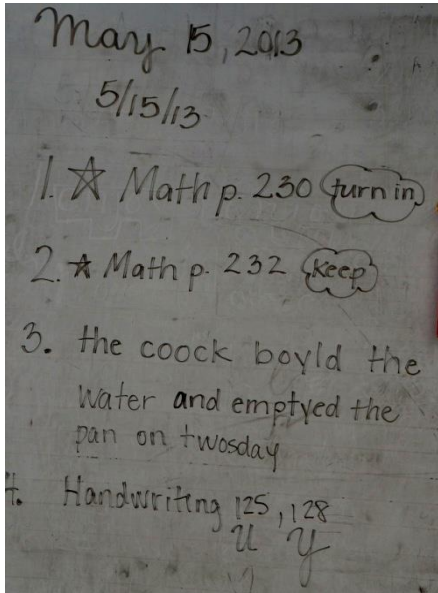 May 15, 2013
5/15/13
1. ☆ Math p. 230 turn in
2. ☆ Math p. 232 keep
3. the coock boyld the
water and emptyed the
pan on twosday
4. Handwriting 125, 128
u y